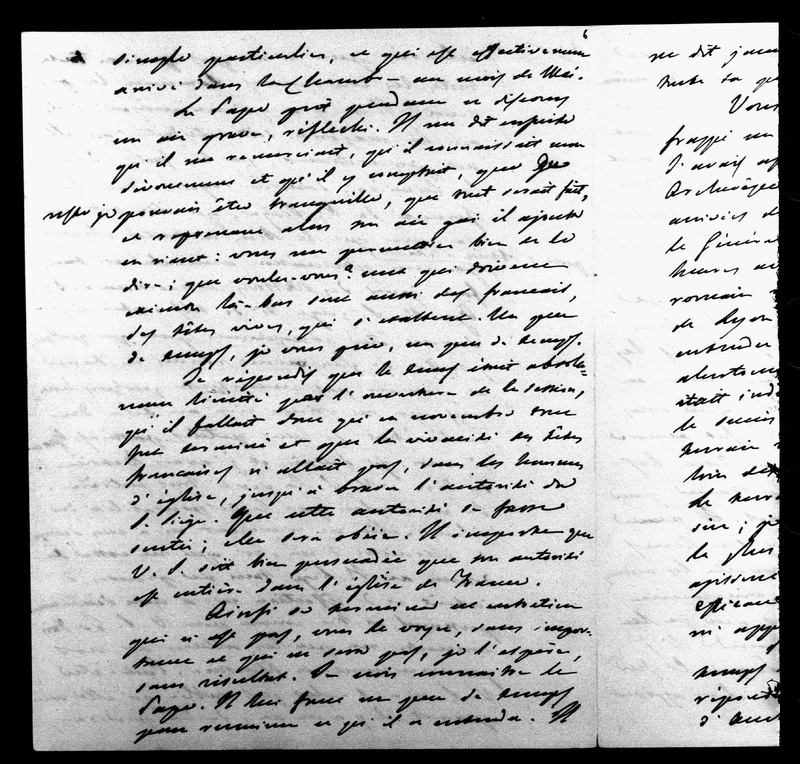 6
simple particulier, ce qui est effectivement
arrivé dans la Chambre au mois de Mai.
Le Pape prit pendant ce discours
un air grave, réfléchi. Il me dit ensuite
qu'il me remerciait, qu'il connaissait mon
dévouement et qu'il y comptait, que je
pouvais être tranquille, que tout serait fait,
et reprenant alors son air gai il ajouta
en riant: vous me permettrez bien de le
dire; que voulez-vous? ceux qui doivent
là-bas sont aussi des français,
des têtes vives, qui s'exaltent. Un peu
de temps, je vous prie, un peu de temps.
Je répondis que le temps était absolu-
ment limité par l'ouverture de la session,
qu'il fallait donc qu'en novembre tout
fut terminé et que la vivacité des têtes
françaises n'allait pas, dans les hommes
d'église, jusqu'à braver l'autorité du
S. Siège. Que cette autorité se fasse
sentir; elle sera obéie. Il importe que
V. S. soit bien persuadée que son autorité
est entière dans l'église de France.
Ainsi se termina cet entretien
qui n'est pas, vous le voyez, sans impor-
tance et qui ne sera pas, je l'espère,
sans résultat. Je crois connaître le
Pape. Il lui faut un peu de temps
pour ce qu'il a entendu. Il
ne dit
Vous
frappé
J'avais
Archevêque
arrivés
le Général
heures
romain
de Lyon
était
le succès
terrain
de
le plus
temps